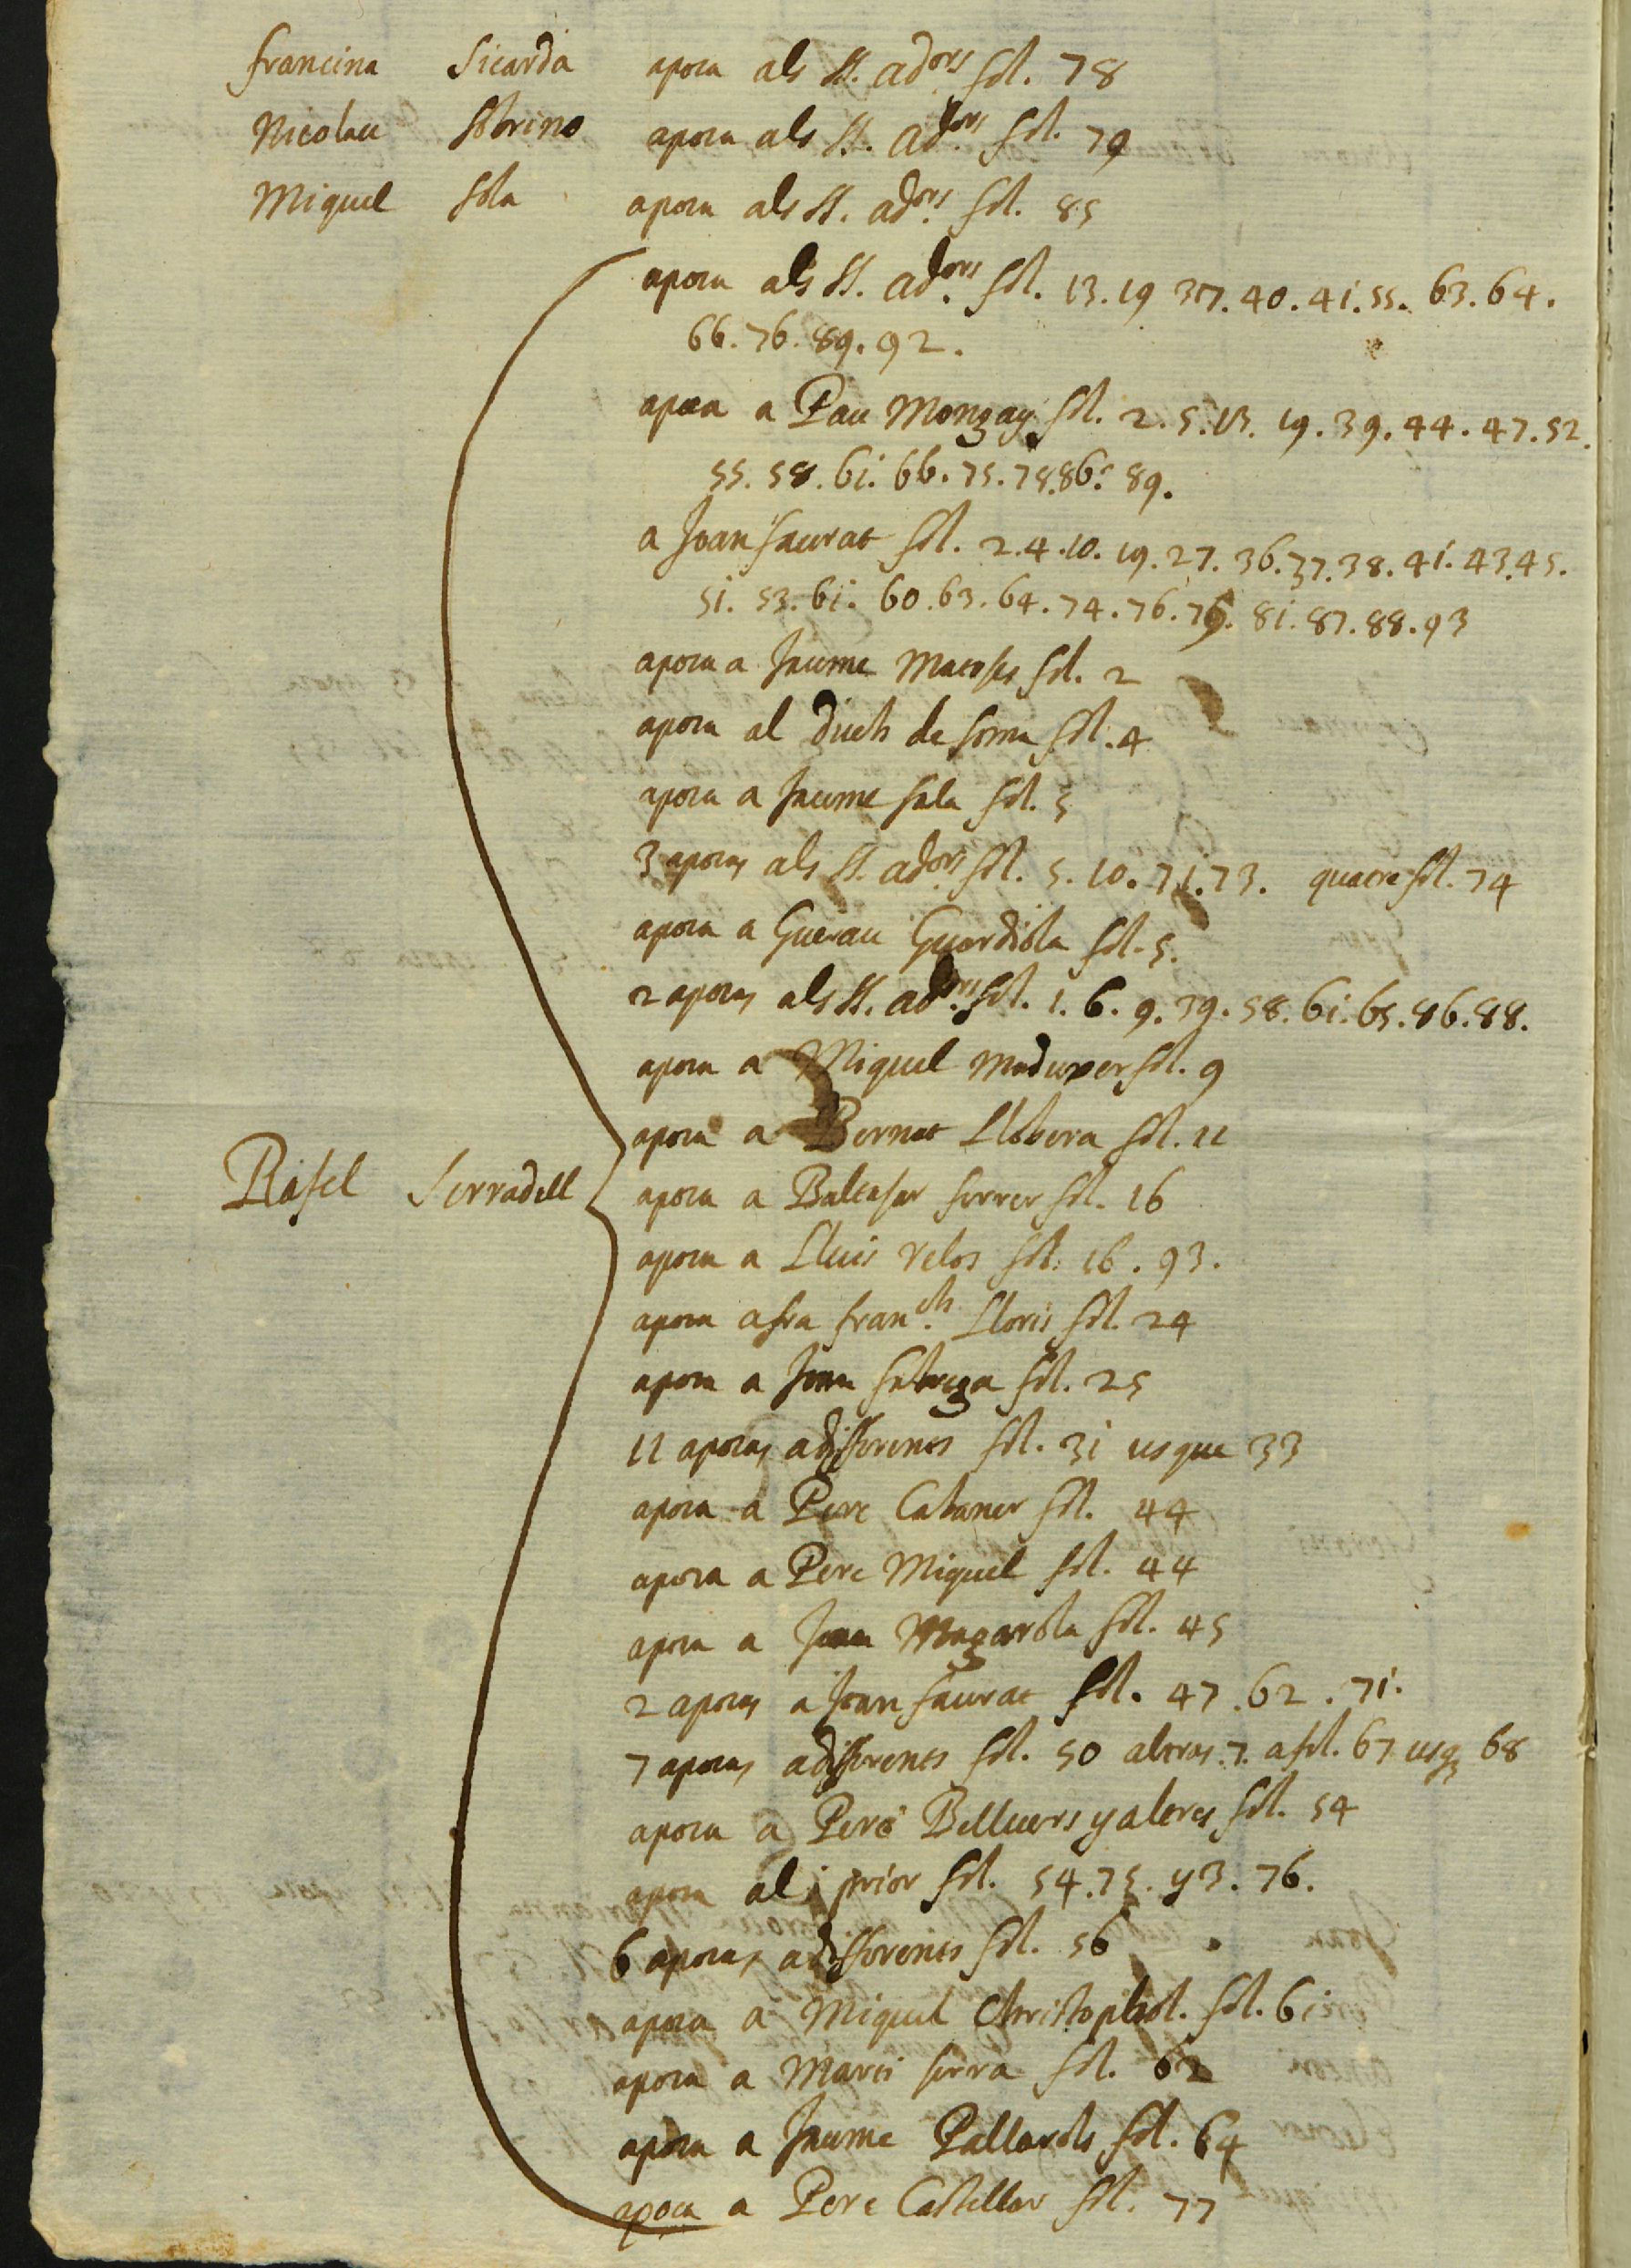 francina Sicarda apoca als SS. ad.ors fol. 78
Nicolau Sobrino apoca als SS. ad.ors fol. 79
Miquel Sola apoca als SS. ad.ors fol. 85
apoca als SS. ad.ors fol. 13. 19 37. 40. 41. 55. 63. 64.
66. 76. 89. 92.
apoca a Pau Monzay fol. 2. 5. 13. 19. 39. 44. 47. 52.
55. 58. 61. 66. 75. 78. 86. 89.
a Joan saurat fol. 2. 4. 10. 19. 27. 36. 37. 38. 41. 43. 45.
51. 53. 61. 60. 63. 64. 74. 76. 79. 81. 87. 88. 93
apoca a Jaume Matoses fol. 2
apoca al duch de soma fol. 4
apoca a Jaume sala fol. 5
3 apocas als SS. ad.ors fol. 5. 10. 71. 73. quatre fol. 74
apoca a Guerau Guardiola fol. 5.
2 apocas als SS. ad.ors fol. 1. 6. 9. 39. 58. 61. 65. 86. 88.
apoca a Miquel maduxer fol. 9
apoca a Bernat Llobera fol. 11
Rafel Serradell apoca a Baltasar ferrer fol. 16
apoca a Lluis Velos fol. 16. 93.
apoca a fra fran.ch Lloris fol. 24
apoca a Joan fabrega fol. 25
11 apocas a differents fol. 31 usque 33
apoca a Pere Cabaner fol. 44
apoca a Pere Miquel fol. 44
apoca a Joan Magarola fol. 45
2 apocas a Joan saurat fol. 47. 62. 71.
7 apocas a differents fol. 50 altras. 7. a fol. 67 usq3 68
apoca a Pere Bellvers y altres fol. 54
apoca al prior fol. 54. 75. y 3. 76.
6 apocas a differents fol. 56
apoca a Miquel Christophol. fol. 61
apoca a Marti serra fol. 62
apoca a Jaume Pallarols fol. 64
apoca a Pere Castellar fol. 77